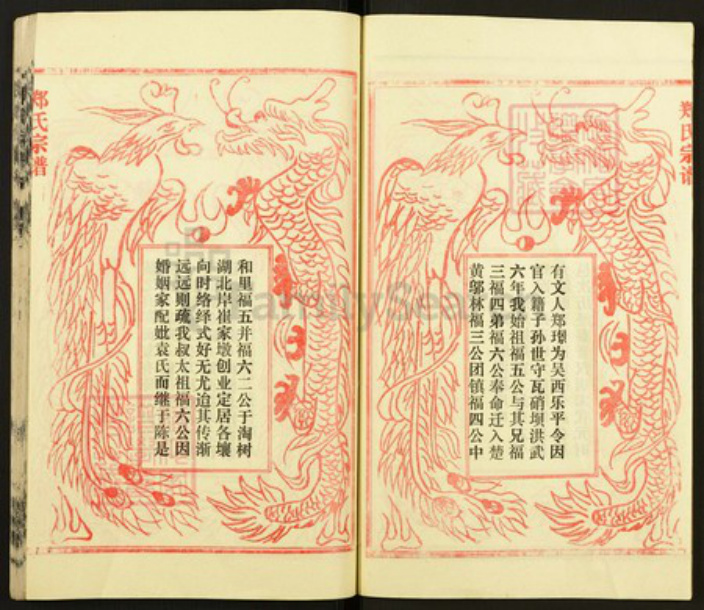 郑氏宗谱
有文人郑璟为吴西乐平令因
官入籍子孙世守瓦硝坝洪武
六年我始祖福五公与其兄福
三福四弟福六公奉命迁入楚
黄邬林福三公团镇福四公中
郑氏宗谱
和里福五并福六二公于淘树
湖北岸崔家墩创业定居各壤
向时络绎式好无尤迨其传渐
远远则疏我叔太祖福六公因
婚姻家配妣袁氏而继于陈是
FamilySearch